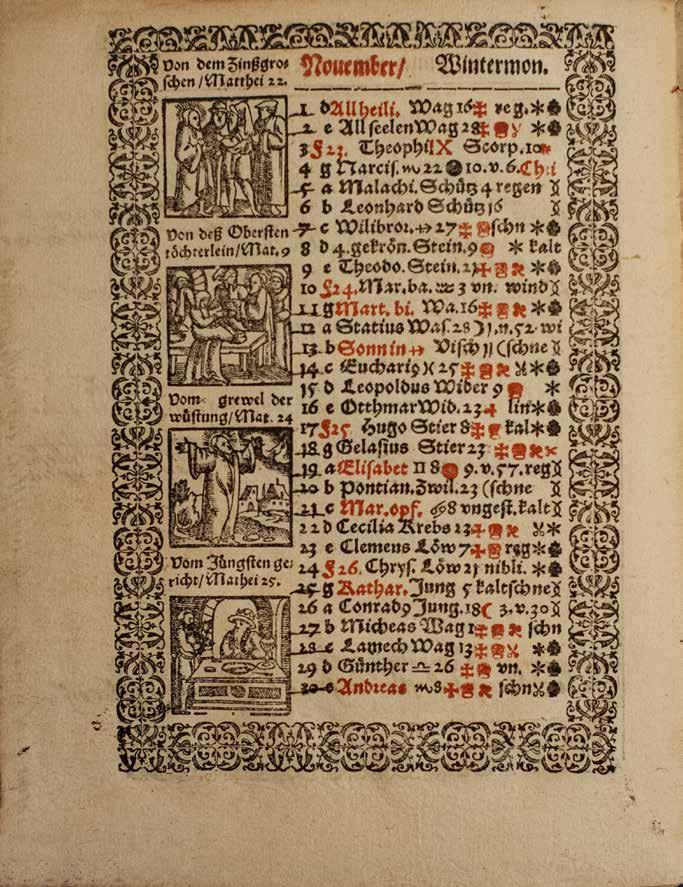 Von dem Zinßgro⸗
schen / Matthei 22.
November/ Wintermon.
1 d Allheili. Wag 16 reg.
2 e Allseelen Wag 28
3 F23. Theophil Scorp. 10
4 g Narcis. ♏ 22 10. v. 6.
5 a Malachi. Schütz 4 regen
6 b Leonhard Schütz 16
7 c Wilibro. 27 schn
8 d 4. gekrön. Stein. 9 kalt
9 e Theodo. Stein.
10 F24. Mar. ba. ♒ 3 vn. wind
11 g Mart. bi. Wa. 16
12 a Statius Was. 28 n. 52. wi
13 b Sonn in Visch (schne
14 c Euchari9 ♓ 25
15 d Leopoldus Wider 9
16 e Otthmar Wid. 23 lin
17 F25. Hugo Stier 8 kal
18 g Gelasius Stier 23
19 a Elisabet ♊ 8 9. v. 57. reg
20 b Pontian. Zwil. 23 (schne
21 c Mar. opf. ♋ 8 vngest. kalt
22 d Cecilia Krebs 23
23 e Clemens Löw 7 reg
24 F26. Chrys. Löw 21 nibli.
25 g Kathar. Jung 5 kalt schne
26 a Conrad9 Jung. 18 ☾ 3. v. 30
27 b Micheas Wag 1 schn
28 c Lamech Wag 13
29 d Günther ♎ 26 vn.
30 e Andreas ♏ 8 schn
Von deß Obersten
töchterlein / Mat. 9
Vom grewel der
wüstung / Mat. 24
Vom Jüngsten ge⸗
richt / Mathei 25.